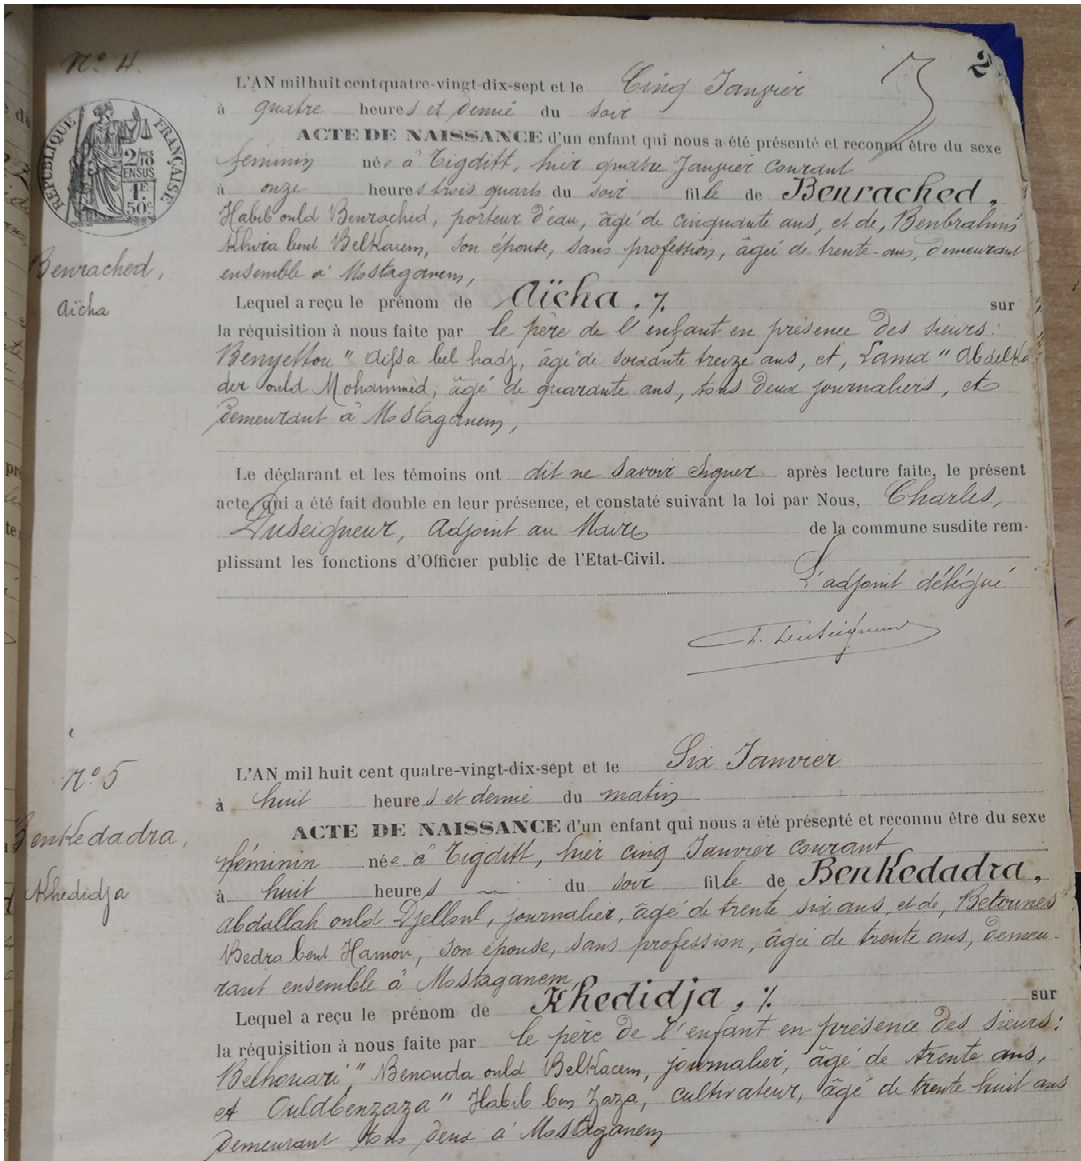 N° 4
2
3
L'AN mil huit cent quatre-vingt-dix-sept et le Cinq Janvier
à quatre heures et demie du soir
ACTE DE NAISSANCE d'un enfant qui nous a été présenté et reconnu être du sexe
féminin née à Tigditt, hier quatre Janvier courant
à onze heures trois quarts du soir fille de Benrached,
Habib ould Benrached, porteur d'eau, âgé de cinquante ans, et de, Benbrahim
Khira bent Belkacem, son épouse, sans profession, âgée de trente ans, demeurant
ensemble à Mostaganem,
Lequel a reçu le prénom de Aïcha. %. sur
la réquisition à nous faite par le père de l'enfant en présence des sieurs:
Benyettou" Aïssa bel hadj, âgé de soixante treize ans, et, Lama" Abdelka
der ould Mohammed, âgé de quarante ans, tous deux journaliers, et
demeurant à Mostaganem,
Le déclarant et les témoins ont dit ne savoir signer après lecture faite, le présent
acte qui a été fait double en leur présence, et constaté suivant la loi par Nous, Charles,
Duseigneur, adjoint au Maire de la commune susdite rem-
plissant les fonctions d'Officier public de l'Etat-Civil.
L'adjoint délégué
C. Duseigneur
RÉPUBLIQUE FRANÇAISE
2/10 en sus
1F 50c
Benrached,
Aïcha
N° 5
Benkedadra,
Khedidja
L'AN mil huit cent quatre-vingt-dix-sept et le Six Janvier
à huit heures et demie du matin
ACTE DE NAISSANCE d'un enfant qui nous a été présenté et reconnu être du sexe
féminin née à Tigditt, hier cinq Janvier courant
à huit heures du soir fille de Benkedadra,
Abdallah ould Djelloul, journalier, âgé de trente six ans, et de, Betounes
Bedra bent Hamou, son épouse, sans profession, âgée de trente ans, demeu-
rant ensemble à Mostaganem
Lequel a reçu le prénom de Khedidja, %. sur
la réquisition à nous faite par le père de l'enfant en présence des sieurs:
Belhouari", Benouda ould Belkacem, journalier, âgé de trente ans,
et Ouldbenzaza" Habib ben Zaza, cultivateur, âgé de trente huit ans
demeurant tous deux à Mostaganem